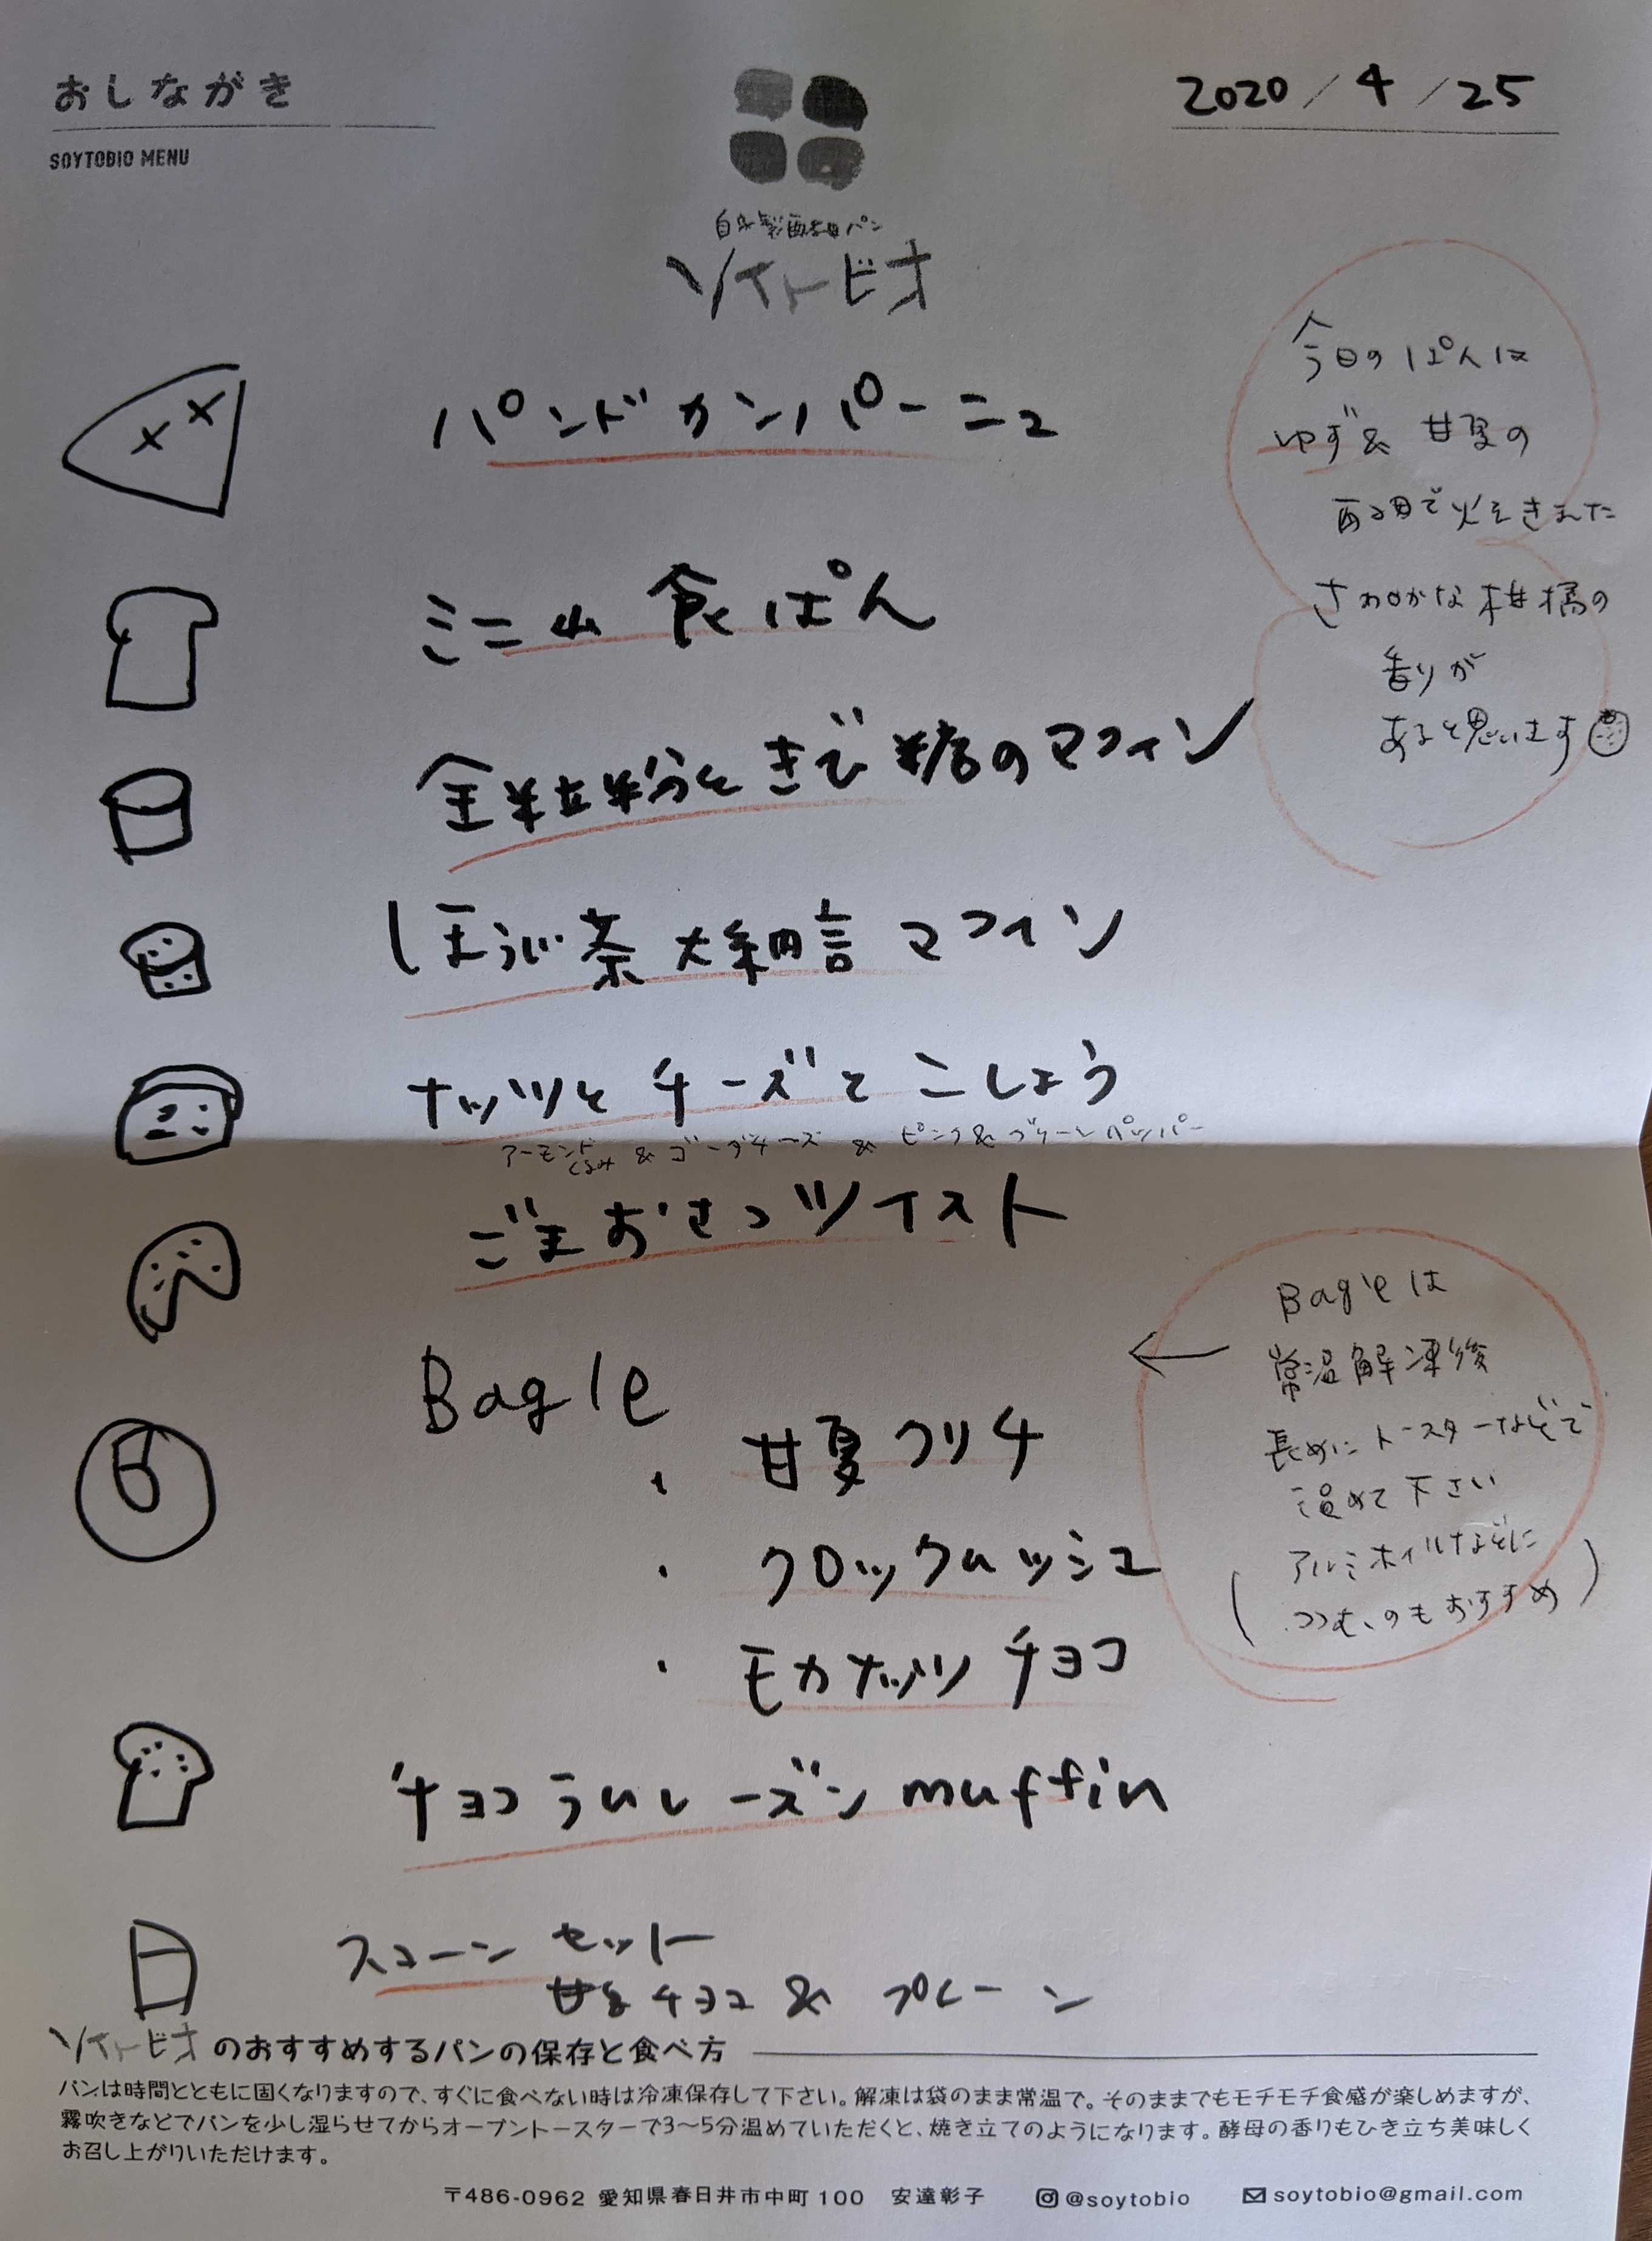 おしながき
SOYTOBIO MENU
2020/4/25
自家製酵母パン
ソイトビオ
パンドカンパーニュ
ミニ山食ぱん
全粒粉ときび糖のマフィン
ほうじ茶大納言マフィン
ナッツとチーズとこしょう
アーモンド
くるみ & ゴーダチーズ & ピンク&グリーンペッパー
ごまおさつツイスト
Bagle
・甘夏クリチ
・クロックムッシュ
・モカナッツチョコ
チョコラムレーズンmuffin
スコーン セット
チョコ & プレーン
今日のぱんは
ゆず&甘夏の
酵母で焼きました
さわやかな柑橘の
香りが
あると思います
← Bagleは
常温解凍後
長めにトースターなどで
温めて下さい
(アルミホイルなどに
つつむのもおすすめ)
ソイトビオのおすすめするパンの保存と食べ方
パンは時間とともに固くなりますので、すぐに食べない時は冷凍保存して下さい。解凍は袋のまま常温で。そのままでもモチモチ食感が楽しめますが、
霧吹きなどでパンを少し湿らせてからオーブントースターで3〜5分温めていただくと、焼き立てのようになります。酵母の香りもひき立ち美味しく
お召し上がりいただけます。
〒486-0962 愛知県春日井市中町100 安達彰子 @soytobio soytobio@gmail.com